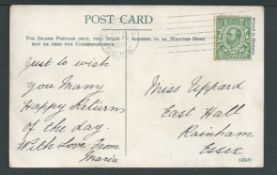 POST CARD
FOR INLAND POSTAGE ONLY, THIS SPACE MAY BE USED FOR CORRESPONDENCE.
ADDRESS TO BE WRITTEN HERE.
Just to wish
you Many
Happy Returns
of the day.
With Love from
Maria
Miss Uppard
East Hall
Rainham
Essex